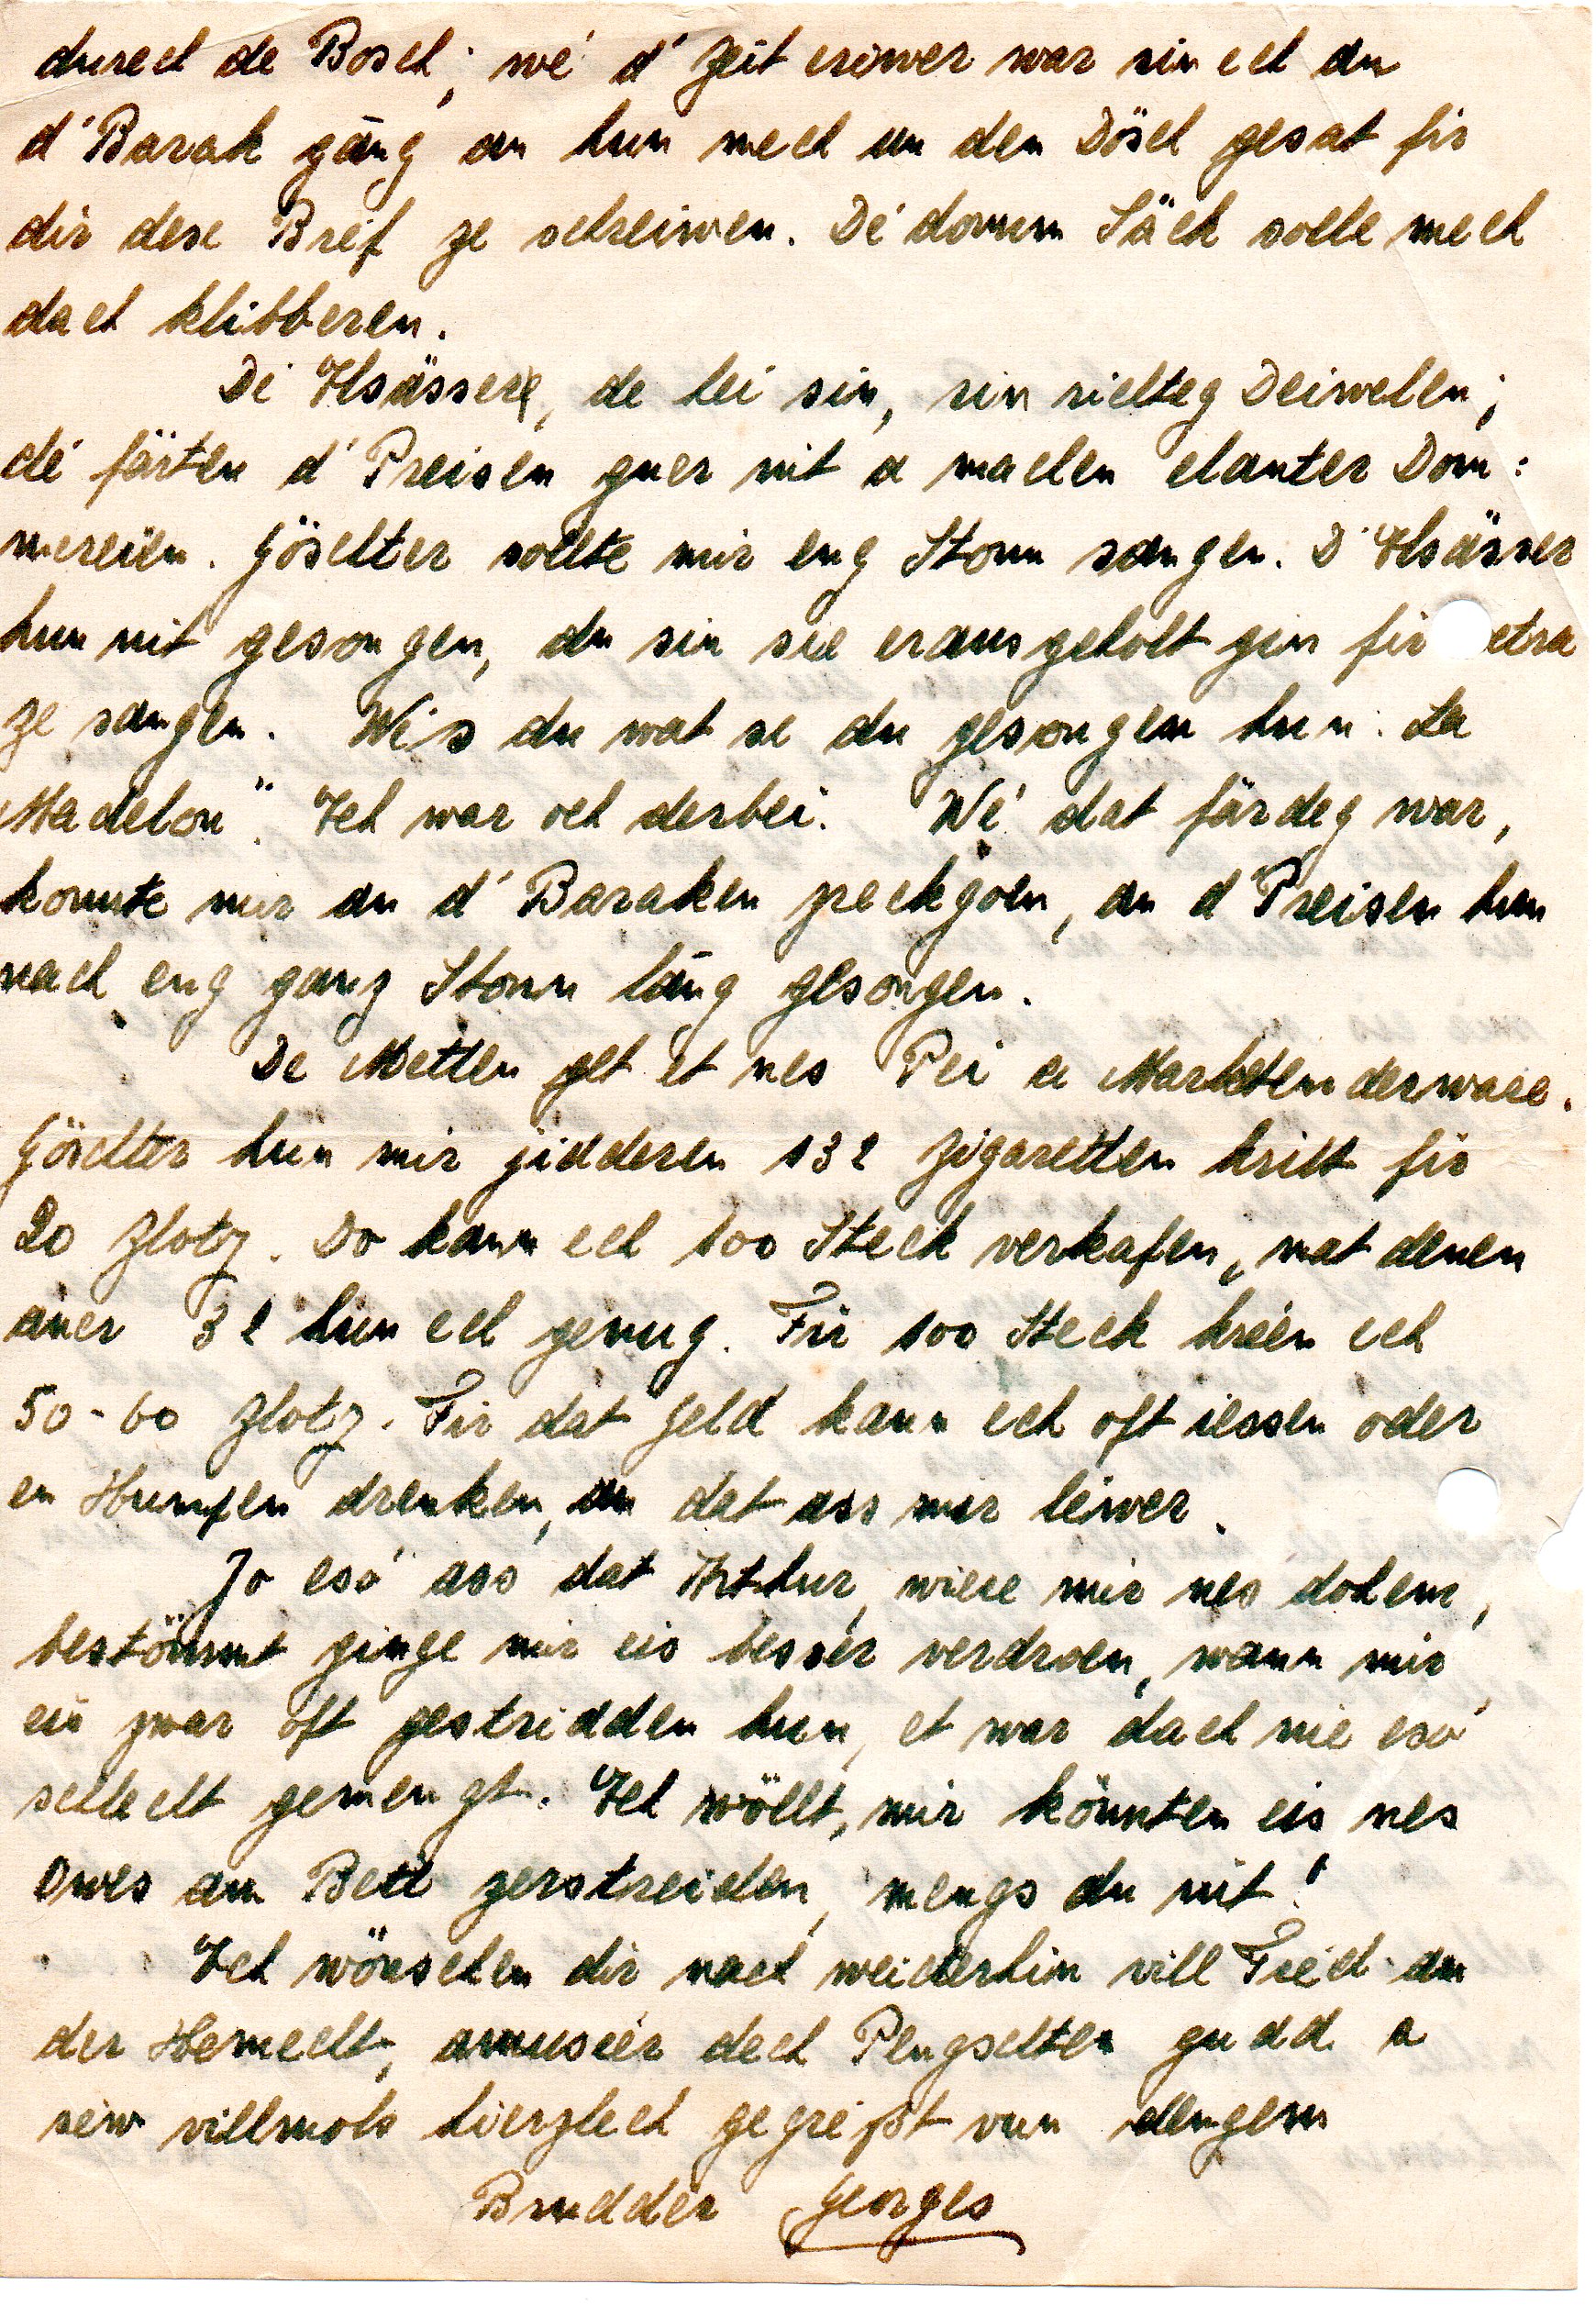 durech de Bosch; wé d'Zeit eriwer war sin ech an
d'Barak gäng an hun mech un den Dösch gesat fir
dir dese Bréf ze schreiwen. Dé domm Säck solle mech
dach klibberen.
Dé Elsässer, de hei sin, sin richteg Deiwelen;
dé färten d'Preisen guer nit a machen elauter Dom=
mereien. Göschter sollte mir eng Stonn sangen. D'Elsässer
hun nit gesongen, du sin sie erausgeholt gin fir extra
ze sangen. Wés du wat se du gesongen hun: La
Madelon". Ech war och derbei. Wé dat färdeg war,
konnte mir an d'Baraken zreckgoen, an d'Preisen hun
nach eng ganz Stonn läng gesongen.
De Metten get et nes Pei a Marketenderware.
Göschter hun mir jidderen 132 Zigaretten kritt fir
20 Zloty. Do kann ech 100 Steck verkafen, mat denen
aner 32 hun ech genug. Fir 100 Steck kréen ech
50-60 Zloty. Fir dat Geld kann ech oft iessen oder
en Humpen drenken, an dat ass mir léiwer.
Jo esó ass dat Arthur, wiere mir nes dohem,
bestömmt ginge mir eis besser verdroen, wann mir
eis zwar oft gestridden hun, et war dach nie esó
schlecht gemengt. Ech wöllt, mir könnten eis nes
Owes am Bett zerstreiden, mengs du nit!
Ech wönschen dir nach weiderhin vill Fréd an
der Hemecht, amuséer dech Pengschten gudd a
seiw villmols hierzlech gegréßt vun dengem
Brudder Georges